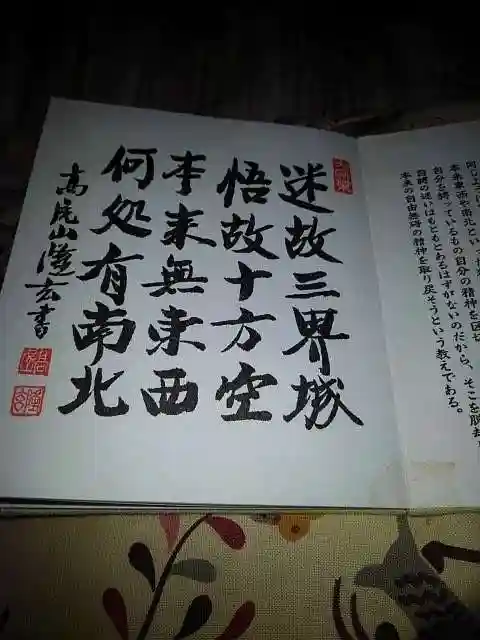 本来東西や南北とい
自分を縛っているもの自分の精神を区切
自縛の迷いはもともとあるはずがないのだから、そこを脱却
本来の自由無碍の精神を取り戻そうという教えである。
迷故三界城
悟故十方空
本来無東西
何処有南北
高虎山隆玄書